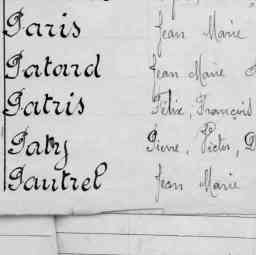 Paris Jean Marie
Patard Jean Marie
Patris Félix, François
Paty Pierre, Victor,
Pautrel Jean Marie